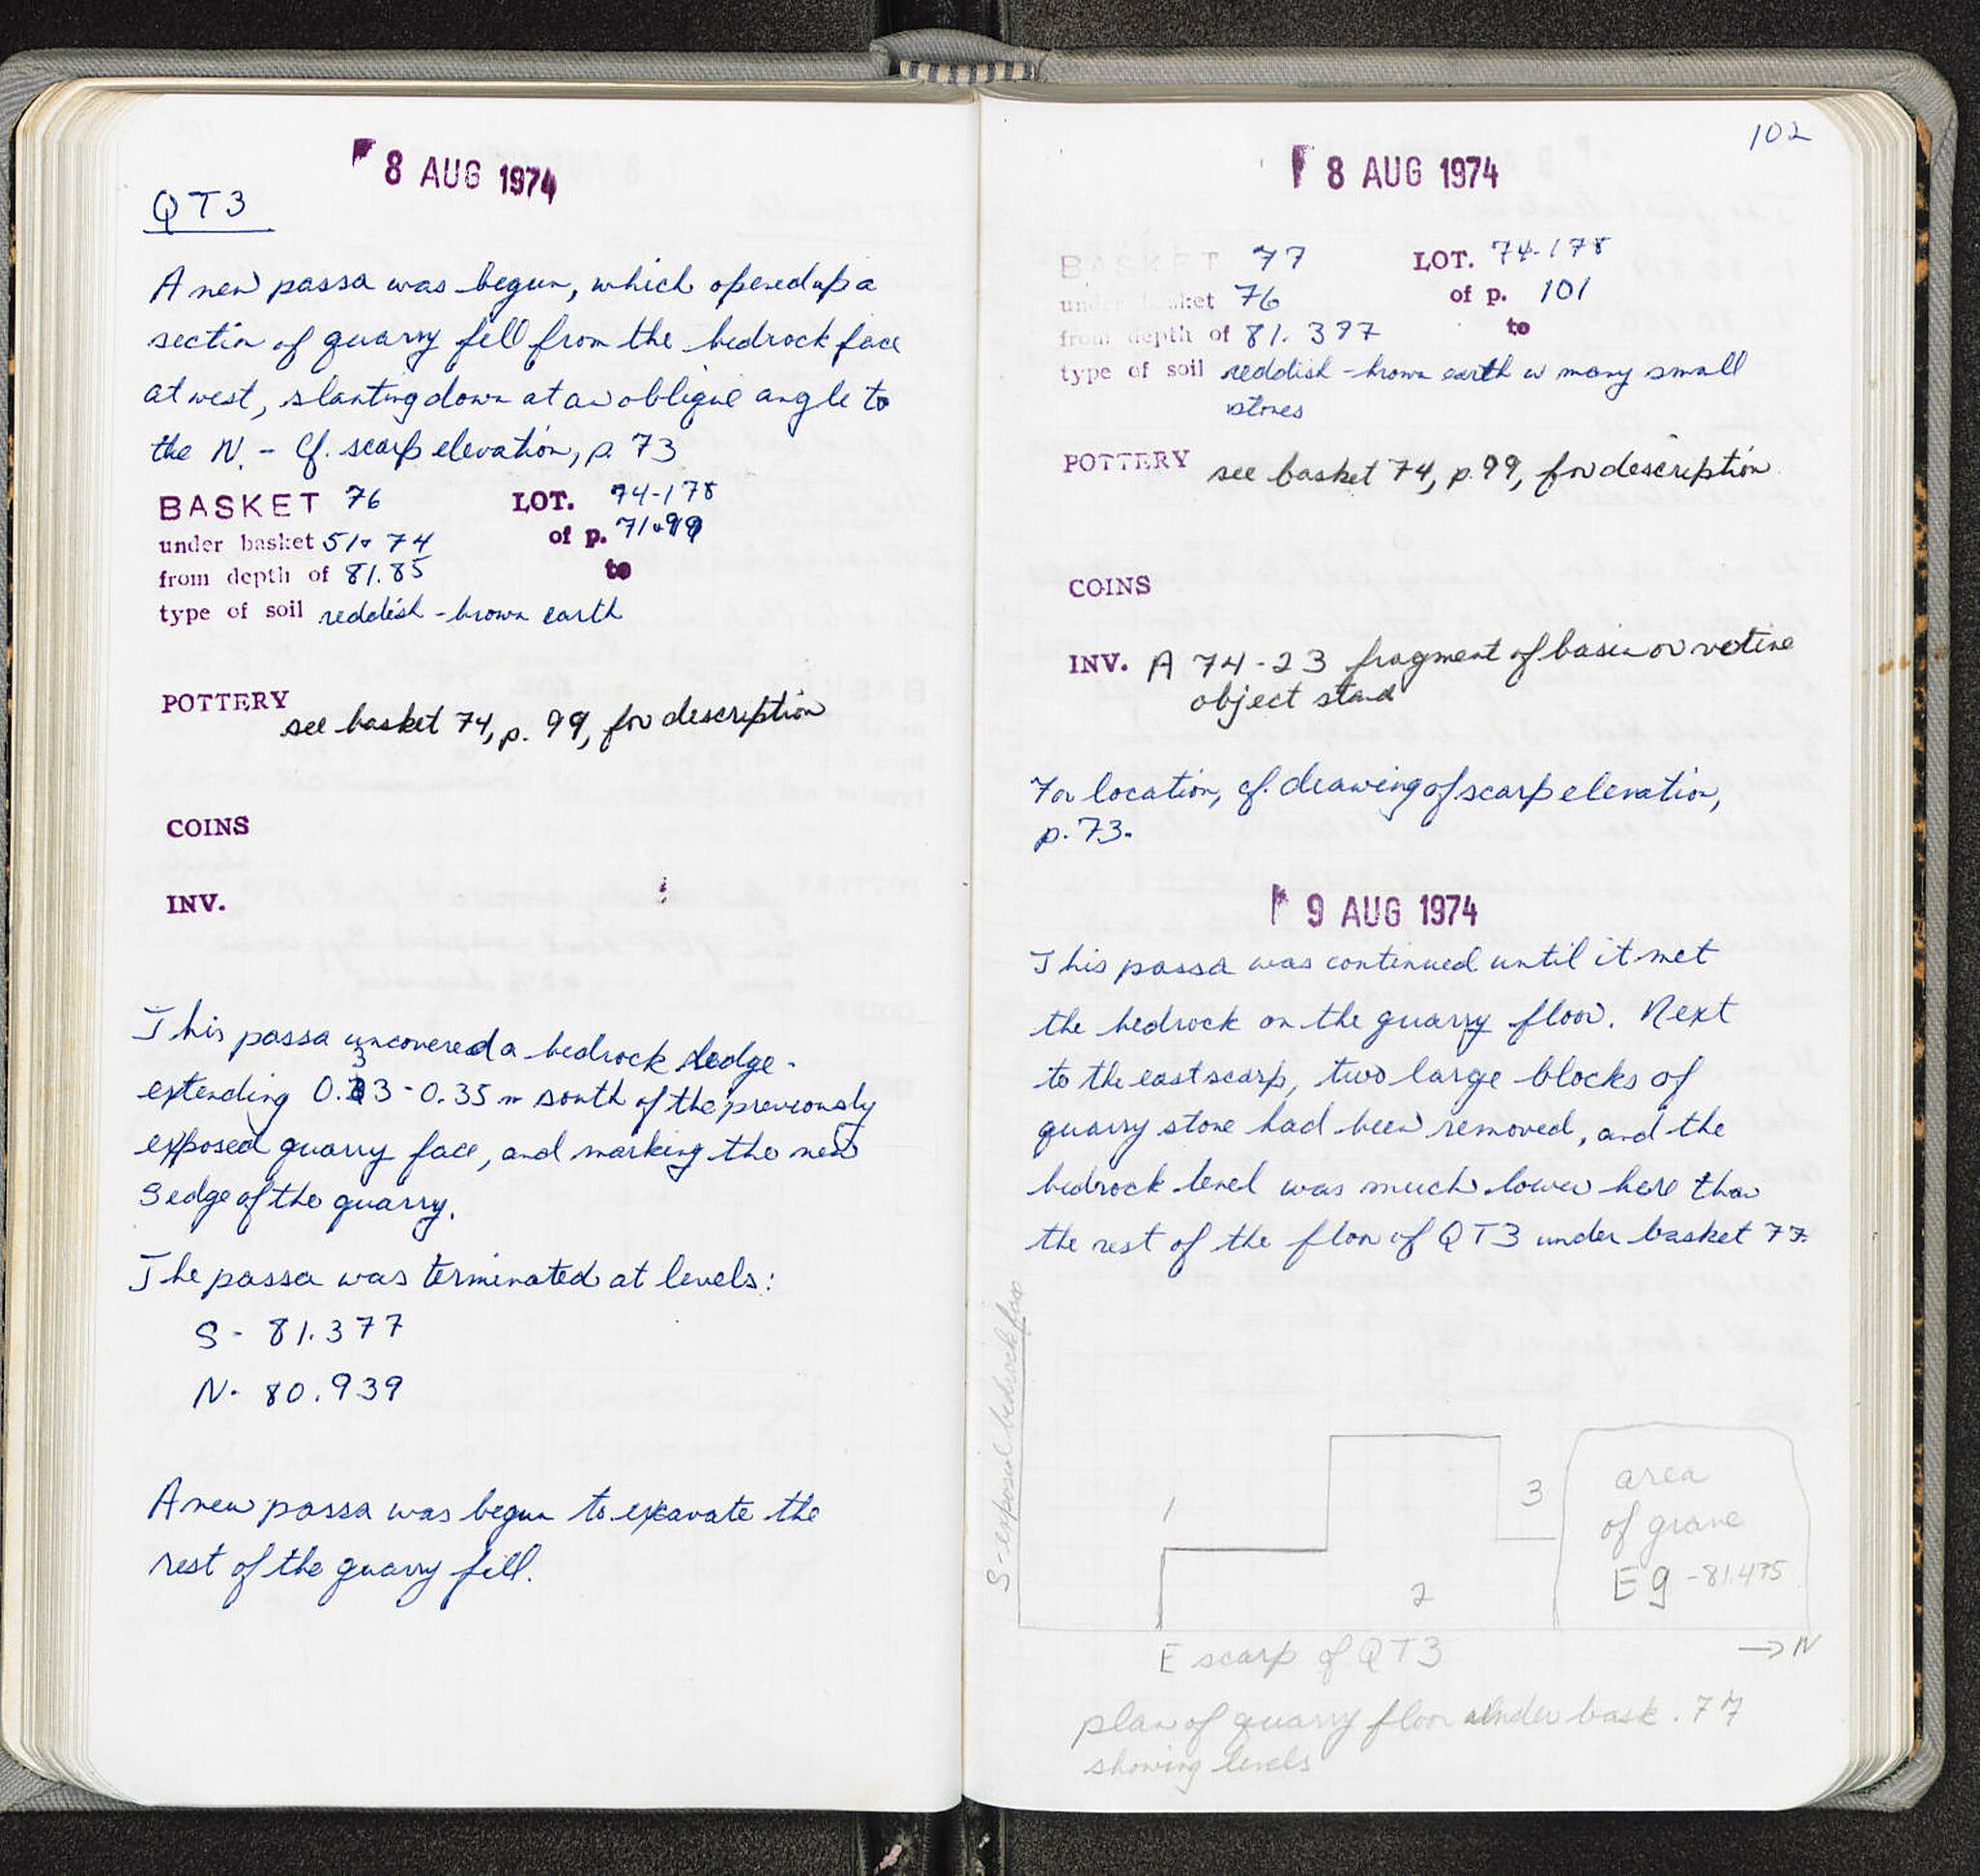 8 AUG 1974
QT3
A new passa was begun, which opened up a
section of quarry fill from the bedrock face
at west, slanting down at an oblique angle to
the N. - Cf. scarp elevation, p. 73
BASKET 76 LOT. 74-178
under basket 51+74 of p. 71+99
from depth of 81.85 to
type of soil reddish-brown earth
POTTERY
see basket 74, p. 99, for description
COINS
INV.
This passa uncovered a bedrock ledge
extending 0.33-0.35 m south of the previously
exposed quarry face, and marking the new
S edge of the quarry.
The passa was terminated at levels:
S- 81.377
N- 80.939
A new passa was begun to excavate the
rest of the quarry fill.
102
8 AUG 1974
BASKET 77 LOT. 74-178
under basket 76 of p. 101
from depth of 81.377 to
type of soil reddish-brown earth w many small
stones
POTTERY see basket 74, p. 99, for description
COINS
INV. A 74-23 fragment of basin or votive
object stand
For location, cf. drawing of scarp elevation,
p. 73.
9 AUG 1974
This passa was continued until it met
the bedrock on the quarry floor. Next
to the east scarp, two large blocks of
quarry stone had been removed, and the
bedrock level was much lower here than
the rest of the floor of QT3 under basket 77.
S-exposed bedrock face
1
2
3
area
of grave
E9 -81.475
E scarp of QT3
→ N
plan of quarry floor under bask. 77
showing levels